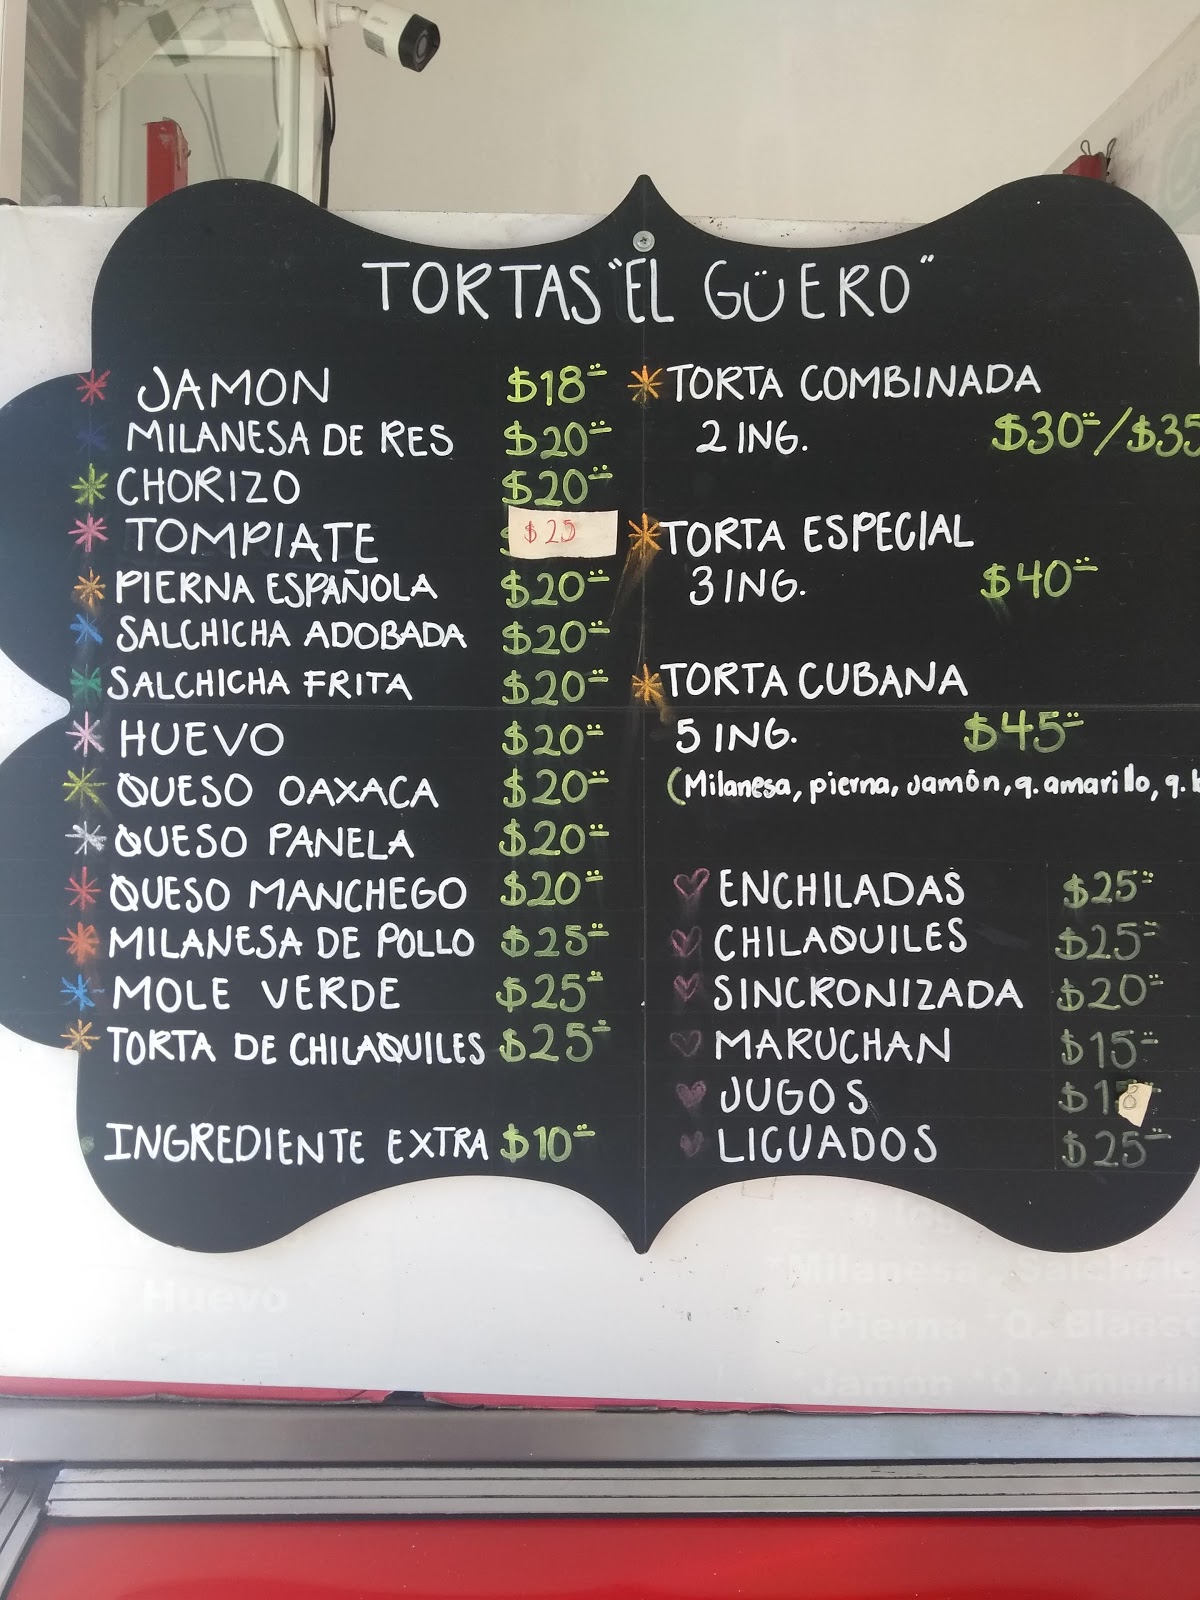 TORTAS "EL GÜERO"
JAMON $18
MILANESA DE RES $20
CHORIZO $20
TOMPIATE $25
PIERNA ESPAÑOLA $20
SALCHICHA ADOBADA $20
SALCHICHA FRITA $20
HUEVO $20
QUESO OAXACA $20
QUESO PANELA $20
QUESO MANCHEGO $20
MILANESA DE POLLO $25
MOLE VERDE $25
TORTA DE CHILAQUILES $25
INGREDIENTE EXTRA $10
TORTA COMBINADA
2 ING. $30/$35
TORTA ESPECIAL
3 ING. $40
TORTA CUBANA
5 ING. $45
(Milanesa, pierna, Jamón, q. amarillo, q.
ENCHILADAS $25
CHILAQUILES $25
SINCRONIZADA $20
MARUCHAN $15
JUGOS $18
LICUADOS $25
Huevo
Milanesa
*Pierna *Q.
Jamón *Q.